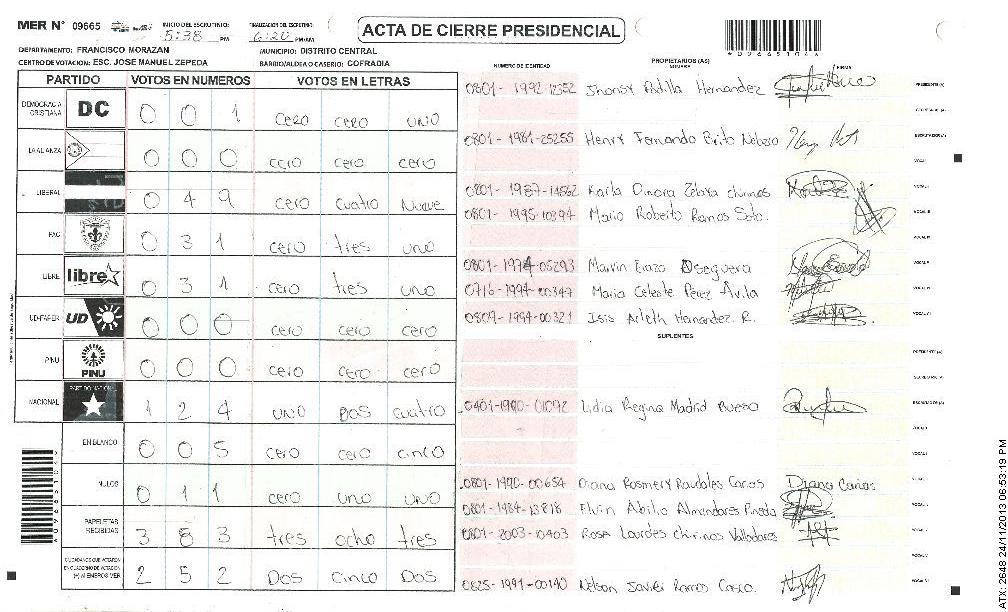 MER N° 09665
INICIO DEL ESCRUTINIO: 5:38 PM
FINALIZACION DEL ESCRUTINIO: 6:20 PM/AM
ACTA DE CIERRE PRESIDENCIAL
*096651046*
DEPARTAMENTO: FRANCISCO MORAZAN
MUNICIPIO: DISTRITO CENTRAL
CENTRO DE VOTACION: ESC. JOSE MANUEL ZEPEDA
BARRIO/ALDEA O CASERIO: COFRADIA
PARTIDO VOTOS EN NUMEROS VOTOS EN LETRAS
DEMOCRACIA CRISTIANA DC 0 0 1 cero cero uno
LA ALIANZA 0 0 0 cero cero cero
LIBERAL 0 4 9 cero cuatro Nueve
PAC 0 3 1 cero tres uno
LIBRE libre 0 3 1 cero tres uno
UD-FAPER UD 0 0 0 cero cero cero
PINU PINU 0 0 0 cero cero cero
NACIONAL PARTIDO NACIONAL 1 2 4 uno Dos cuatro
EN BLANCO 0 0 5 cero cero cinco
NULOS 0 1 1 cero uno uno
PAPELETAS RECIBIDAS 3 8 3 tres ocho tres
CIUDADANOS QUE VOTARON EN CUADERNO DE VOTACION (+) MIEMBROS MER 2 5 2 Dos cinco Dos
NUMERO DE IDENTIDAD
PROPIETARIOS (AS)
NOMBRE
FIRMA
0801-1992-12352 Jhonsy Padilla Hernandez PRESIDENTE (A)
SECRETARIO (A)
0801-1981-25255 Henry Fernando Brito ESCRUTADOR (A)
VOCAL I
0801-1987-14862 Karla Dinora Zelaya chirinos
0801-1995-10394 Mario Roberto Ramos Soto.
0801-1974-05293 Marvin Erazo Oseguera
0716-1994-00347 Maria Celeste Perez Avila
0807-1994-00321 Isis Arleth Hernandez R.
SUPLENTES
PRESIDENTE (A)
SECRETARIO (A)
0401-1990-01092 Lidia Regina Madrid Bueso ESCRUTADOR (A)
0801-1990-00654 Diana Rosmery Raudales Carias Diana Carias
0801-1984-13818 Elvin Abilio Almendares Pineda
0801-2003-10403 Rosa Lourdes Chirinos Valladares
0825-1991-00190 Nelson Javier Ramos Casco.
ATX-2648 24/11/2013 06:53:19 PM